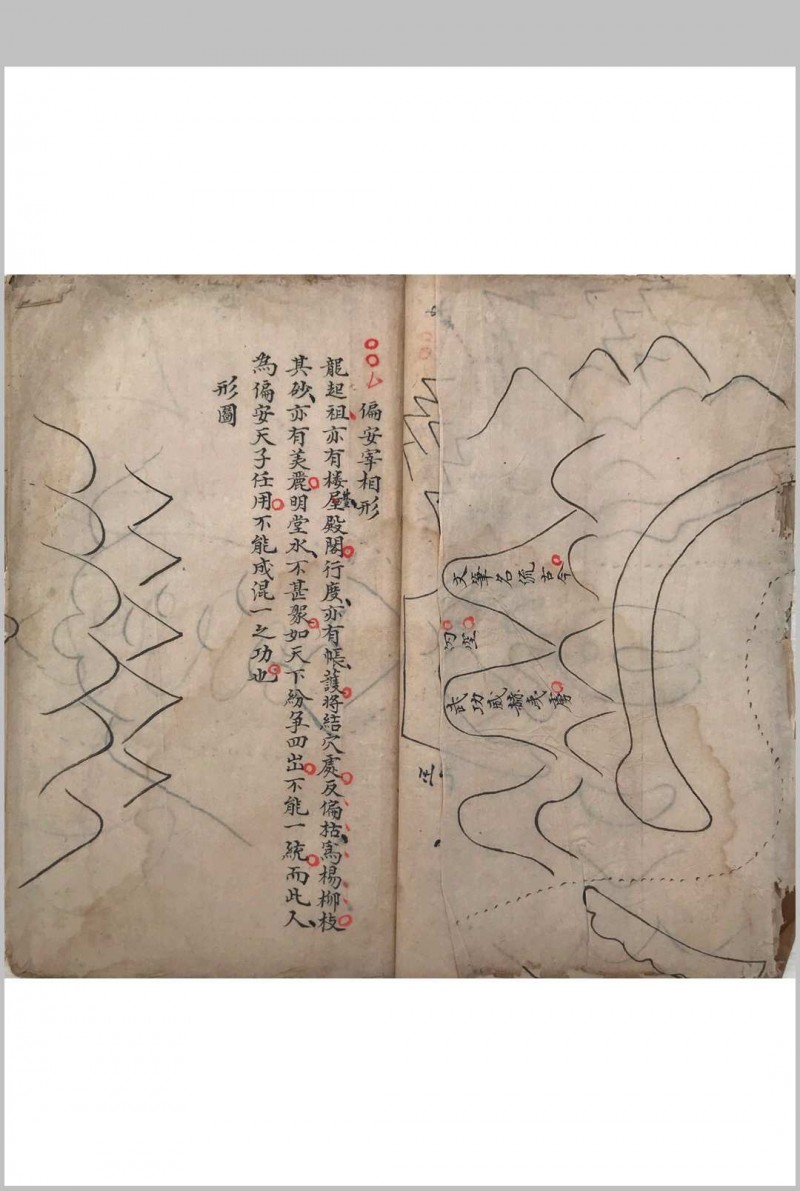 文筆名流古今
武功威鎮戎夷
偏安宰相形
龍起祖亦有楼屋殿閣行度亦有帳護將結穴處反偏枯寫楊柳枝
其砂亦有美麗明堂水不甚聚如天下紛爭四出不能一統而此人
為偏安天子任用不能成混一之功也
形圖